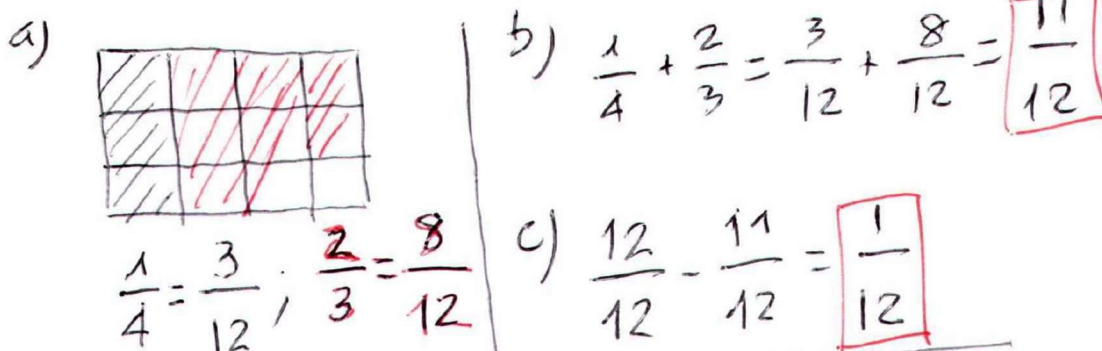 a)
1/4 = 3/12 ; 2/3 = 8/12
b) 1/4 + 2/3 = 3/12 + 8/12 = 11/12
c) 12/12 - 11/12 = 1/12